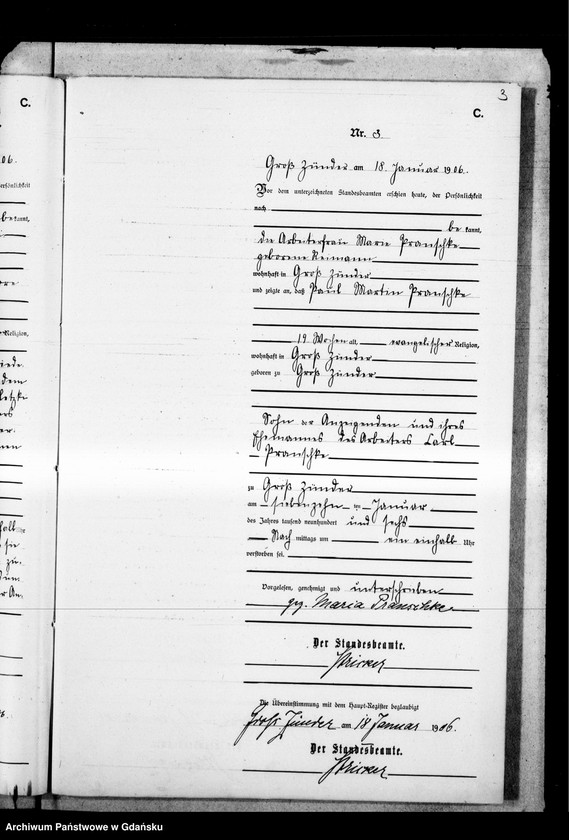 3
C.
C.
Nr. 3.
Groß Zünder am 18. Januar 1906.
Vor dem unterzeichneten Standesbeamten erschien heute, der Persönlichkeit
nach
be kannt,
die Arbeiterfrau Marie Pranschke
geborene Reimann
wohnhaft in Groß Zünder
und zeigte an, daß Paul Martin Pranschke
19 Wochen alt, evangelischer Religion,
wohnhaft in Groß Zünder
geboren zu Groß Zünder
Sohn der Anzeigenden und ihres
Ehemannes des Arbeiters Carl
Pranschke
zu Groß Zünder
am siebenzehn ten Januar
des Jahres tausend neunhundert und sechs
Nach mittags um ein einhalb Uhr
verstorben sei.
Vorgelesen, genehmigt und unterschrieben
gez. Maria Pranschke.
Der Standesbeamte.
Die Übereinstimmung mit dem Haupt-Register beglaubigt
Groß Zünder am 18 Januar 1906.
Der Standesbeamte.
Archiwum Państwowe w Gdańsku